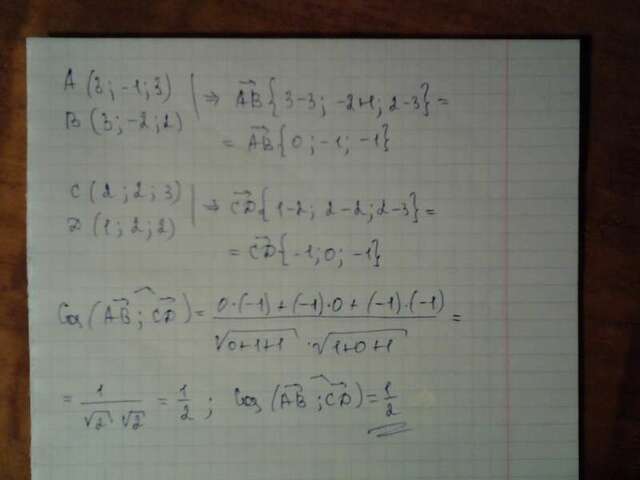 A (3; -1; 3) | ⇒ AB⃗ {3-3; -2+1; 2-3} =
B (3; -2; 2)
= AB⃗ {0; -1; -1}
C (2; 2; 3) | ⇒ CD⃗ {1-2; 2-2; 2-3} =
D (1; 2; 2)
= CD⃗ {-1; 0; -1}
Cos (AB⃗ ; CD⃗) = (0·(-1) + (-1)·0 + (-1)·(-1)) / (√(0+1+1) · √(1+0+1)) =
= 1 / (√2 · √2) = 1/2 ; Cos (AB⃗ ; CD⃗) = 1/2